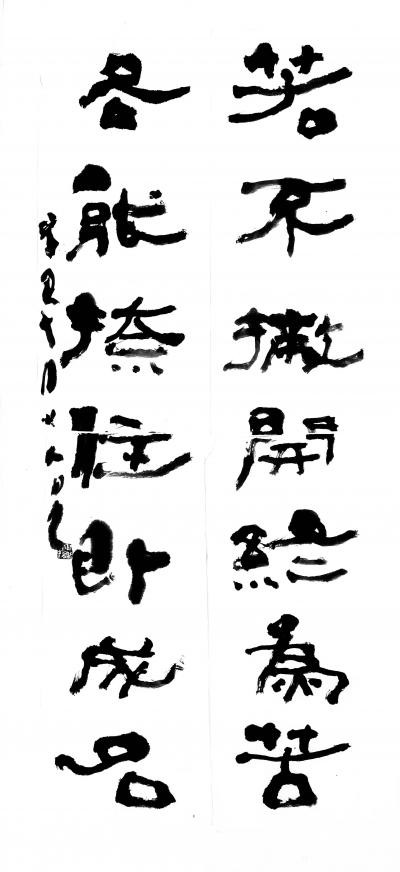 若不撇開終為苦
各能捺住即成名
辛丑